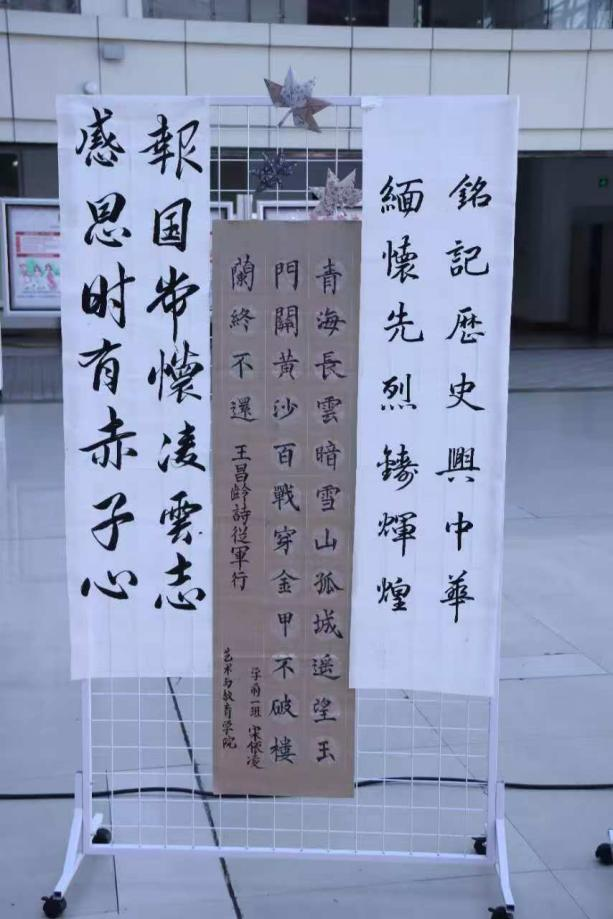 銘記歷史興中華
緬懷先烈鑄輝煌
青海長雲暗雪山孤城遥望玉
門關黄沙百戰穿金甲不破樓
蘭終不還
王昌齡詩從軍行
学前一班 宋依凌
艺术与教育学院
報国常懷凌雲志
感恩时有赤子心